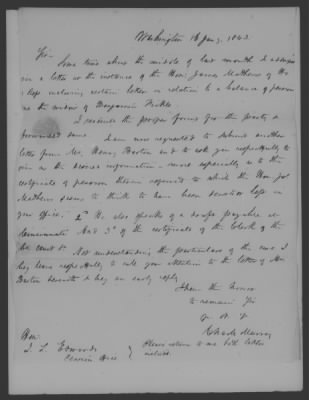 Washington 16 Jany. 1843
Sir
Some time about the middle of last month I address
you a letter at the instance of the Hon: James Mathews of Ho:
Reps inclosing certain letter in relation to a balance of pension
the widow of Benjamin
I received the proper forms for the party &
forwarded same I am now requested to submit another
letter from Mr. Henry Barton and to ask you respectfully to
give me the desired information - more especially as to the
certificate of pension therein referred to which the Hon Jas
Mathews seems to think to have been
your office. 2d He also speaks of a draft payable at
Cincinnati And 3d of the certificate of the Clerk of the
court &c Not understanding the particulars of the case I
beg leave respectfully to call your attention to the letter of Mr
Barton herewith & beg an early reply.
I have the honor
to remain Sir
Charles Murray
Hon:
J. L. Edwards
Pension Office
Please return to me both letters
inclosed.